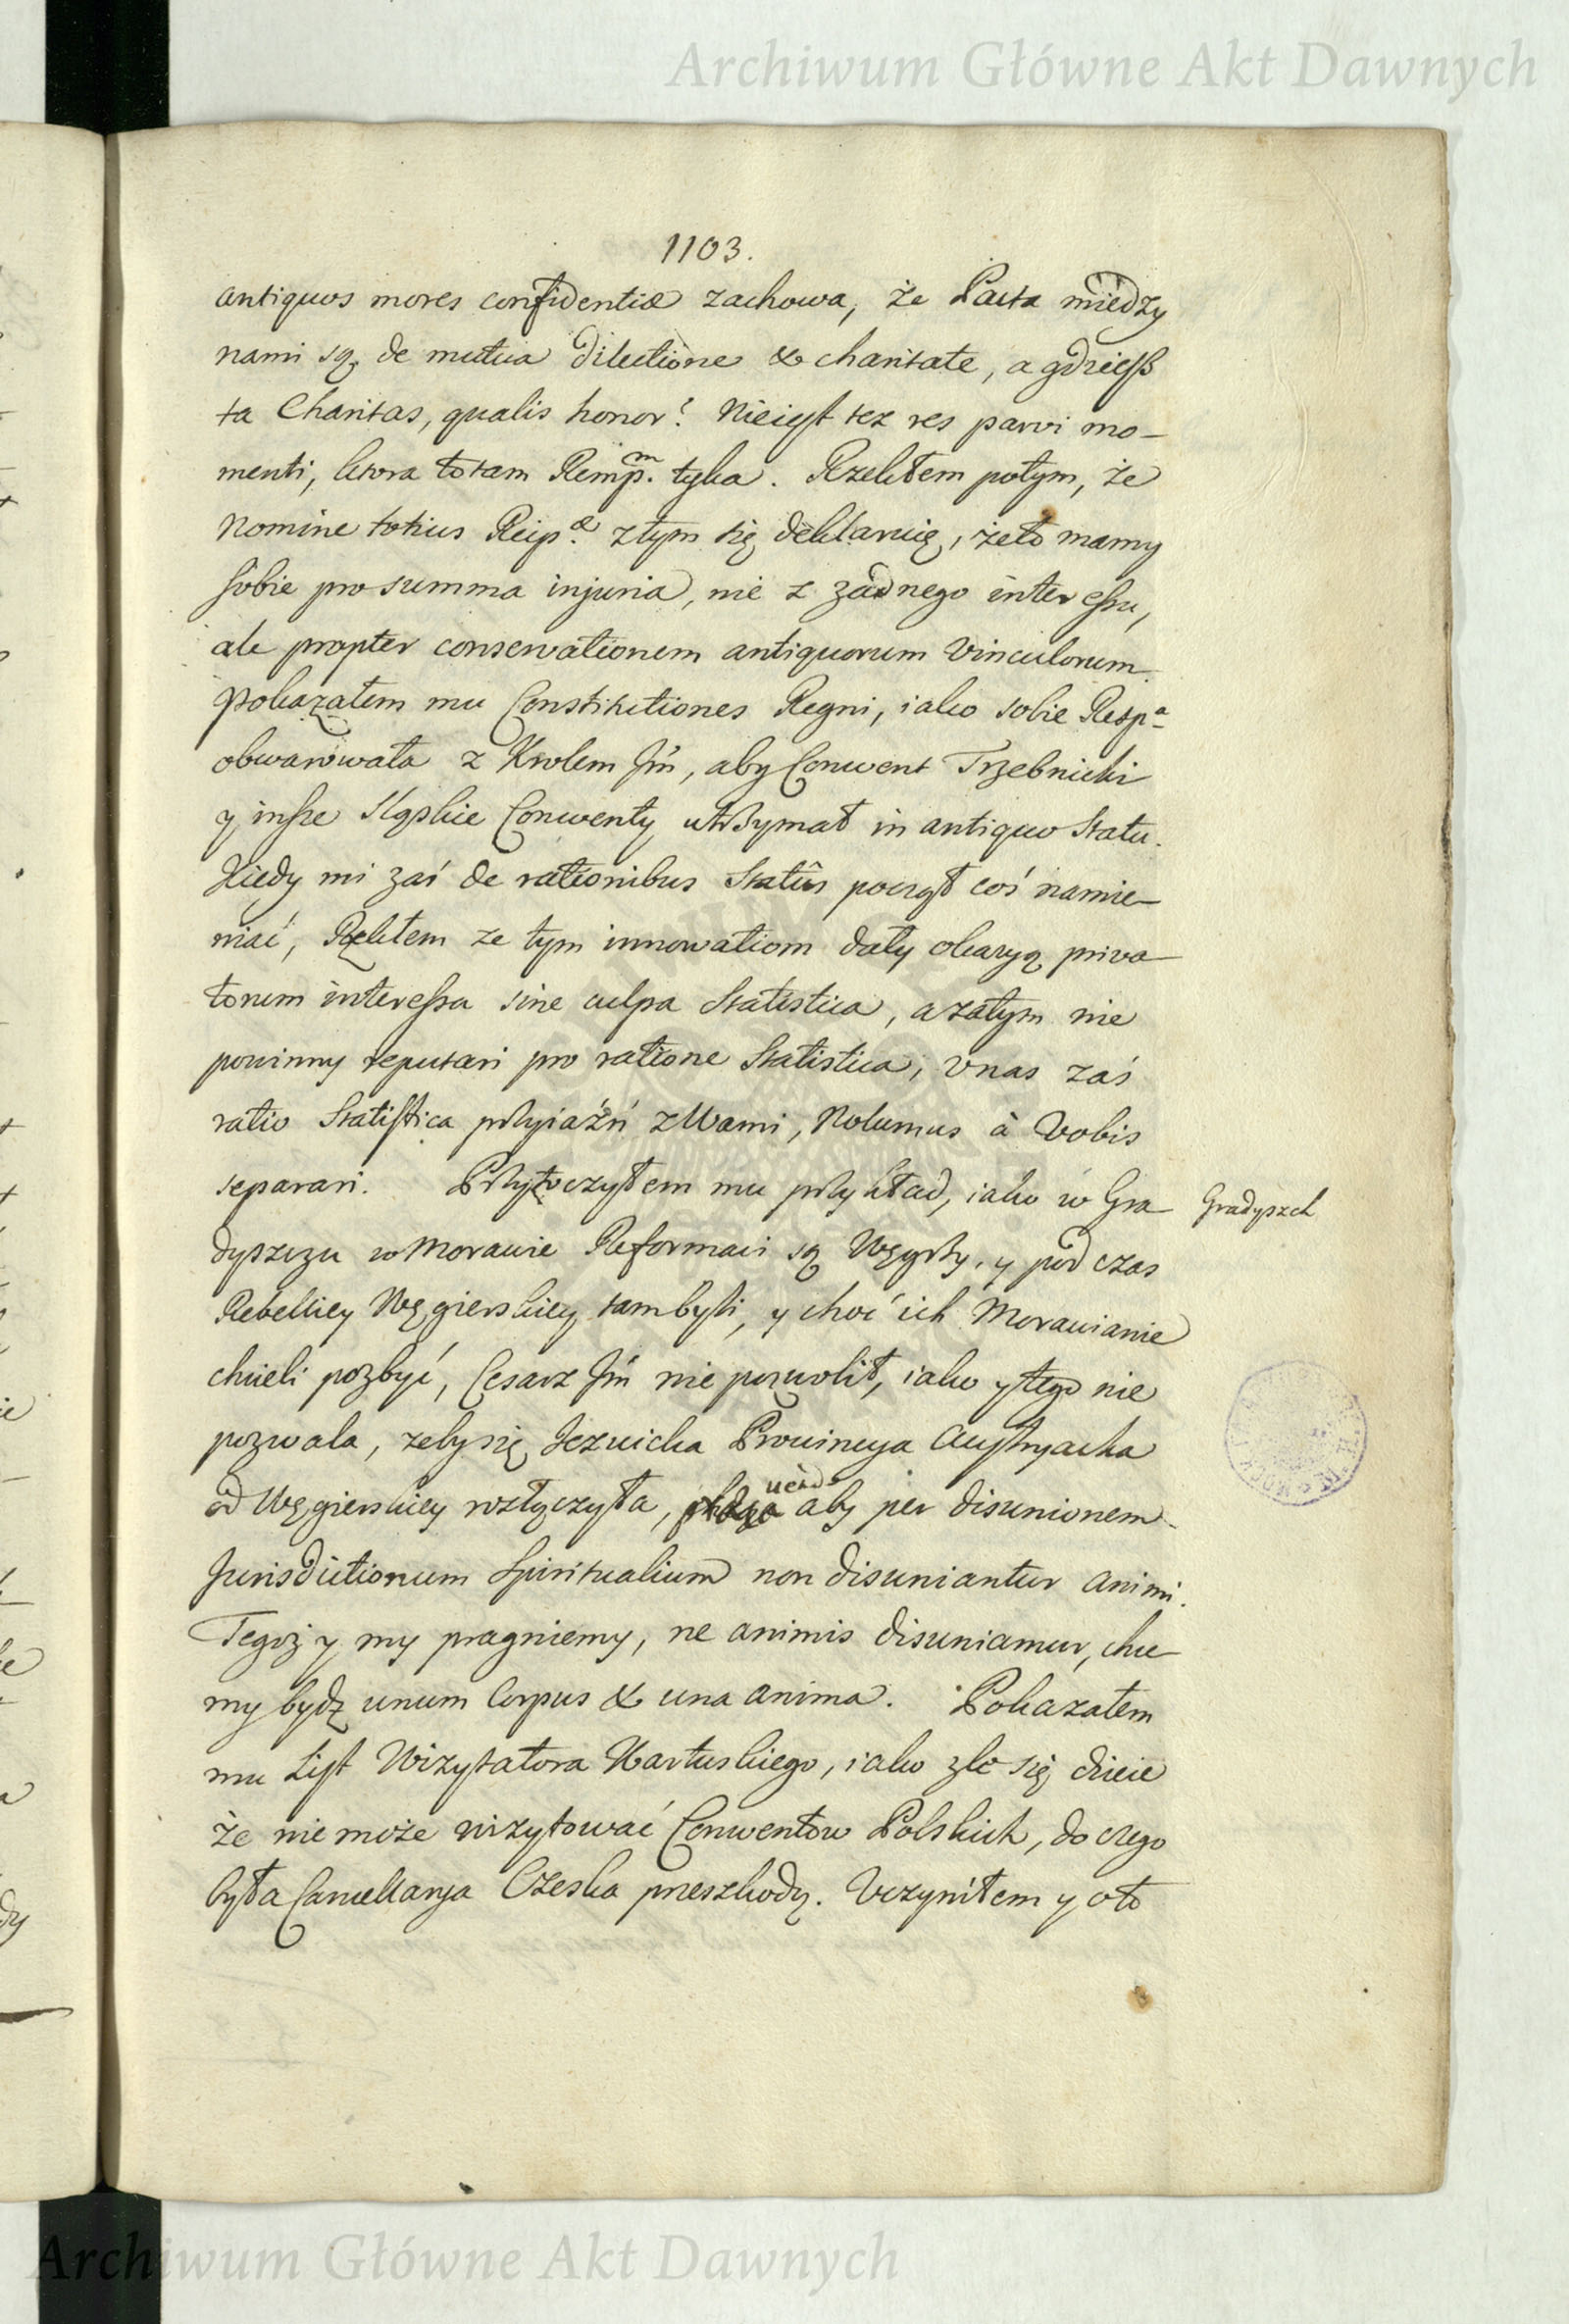 Archiwum Główne Akt Dawnych
1103.
antiquos mores confidentiæ zachowa, że Pacta między
nami są de mutua dilectione & charitate, a gdzieß
ta Charitas, qualis honor? Nieiest tez res parvi mo-
menti, ktora totam Remp.m tyka. Rzekłem potym, że
Nomine totius Reip.æ ztym się deklaruię, żeto mamy
sobie pro summa injuria, nie z żadnego interessu,
ale propter conservationem antiquorum Vinculorum.
Pokazałem mu Constitutiones Regni, iako sobie Resp.a
obwarowała z Krolem Jm̃, aby Conwent Trzebnicki
y insze Sląskie Conwenty utrzymał in antiquo Statu.
Kiedy mi zaś de rationibus Statûs począł coś namie-
niać, Rzekłem ze tym innowatiom dały okazyą priva-
torum interessa sine culpa Statistica, azatym nie
powinny reputari pro ratione Statistica, Vnas zaś
ratio Statistica przyiaźń zWami, Nolumus à Vobis
separari. Przytoczyłem mu przykład, iako w Gra-
Gradyszch
dyszczu w Morawie Reformaci są Węgrzy, y pod czas
Rebelliey Węgierskiey tambyli, y choć ich Morawianie
chcieli pozbyć, Cesarz Jm̃ nie pozwolił, iako y tego nie
pozwala, zeby się Jezuicka Prowincya Austryacka
od Węgierskiey rozłączyła, aby per disunionem
Jurisdictionum Spiritualium non disuniantur animi.
Tegoż y my pragniemy, ne animis disuniamur, chce-
my bydz unum Corpus & una anima. Pokazałem
mu List Wizytatora Kartuskiego, iako źle się dzieie
że nie może wizytować Conwentow Polskich, do czego
była Cancellarya Czeska przeszkodą. Vczyniłem y oto
Archiwum Główne Akt Dawnych